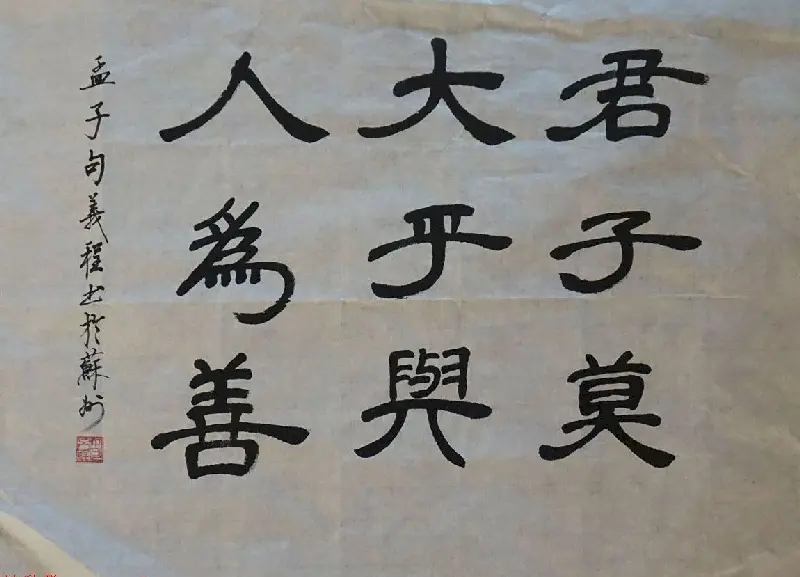 君子莫
大乎與
人為善
孟子句義程书於蘇州